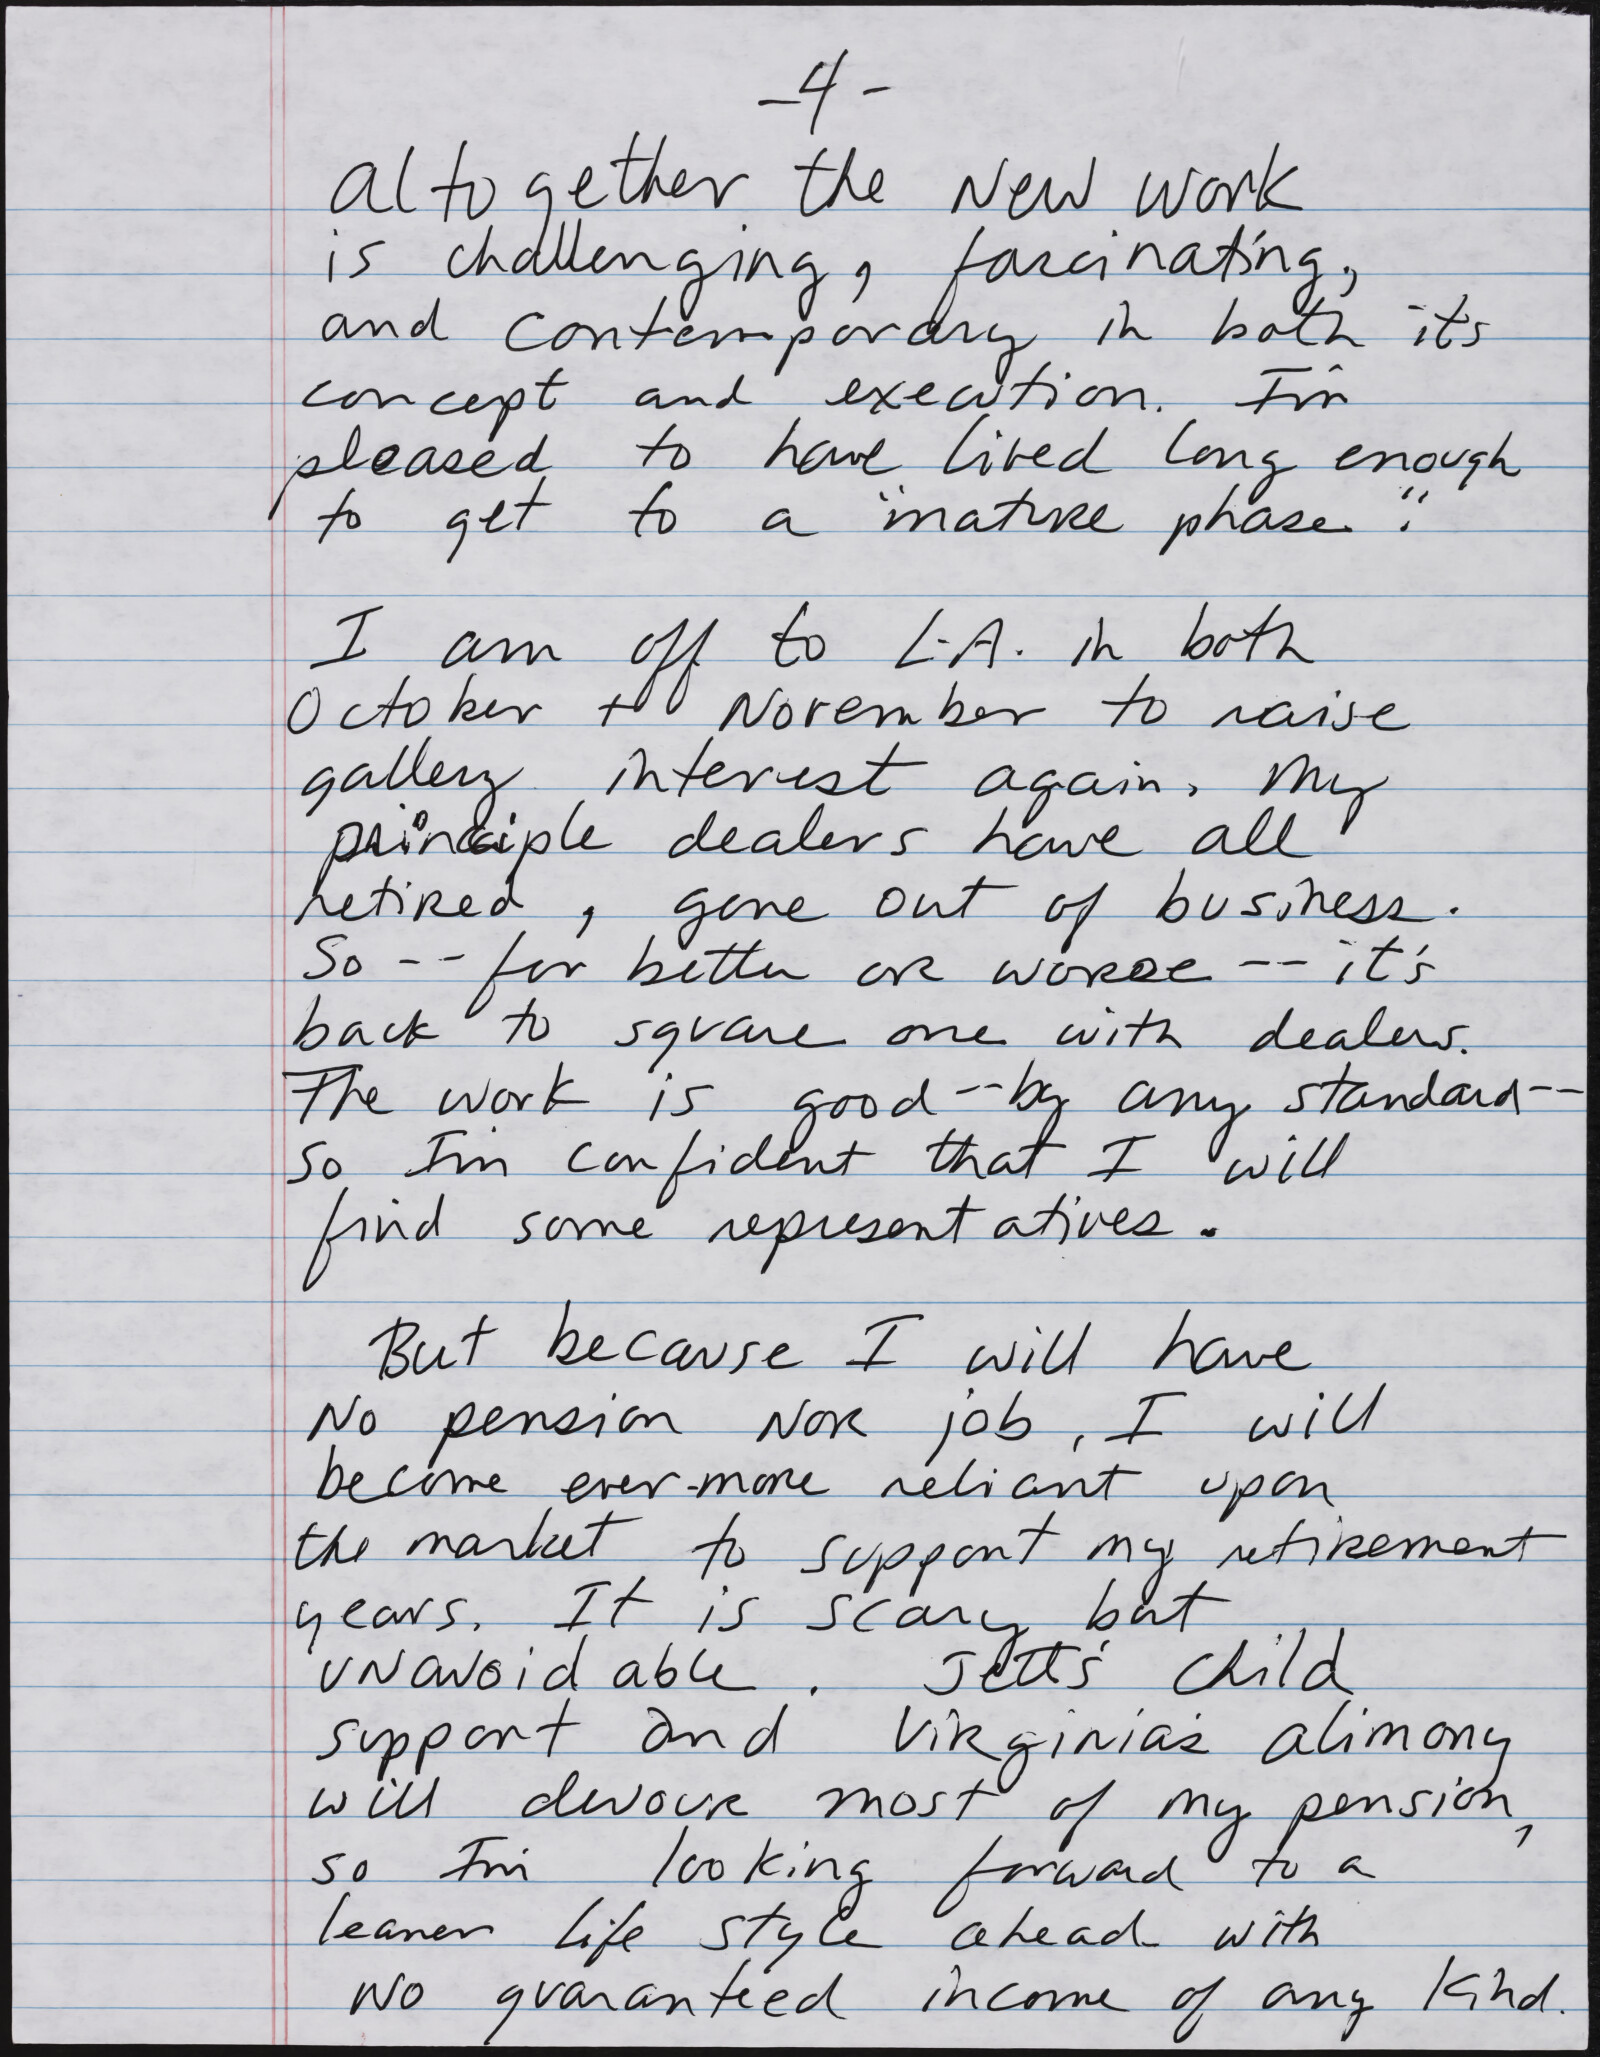 -4-
Altogether the New Work
is challenging, fascinating,
and contemporary in both it's
concept and execution. I'm
pleased to have lived long enough
to get to a "mature phase."
I am off to L.A. in both
October + November to raise
gallery interest again. My
principle dealers have all
retired, gone out of business.
So -- for better or worse -- it's
back to square one with dealers.
The work is good -- by any standard --
so I'm confident that I will
find some representatives.
But because I will have
No pension Nor job, I will
become ever-more reliant upon
the market to support my retirement
years. It is scary but
unavoidable. Jett's child
support and Virginia's alimony
will devour most of my pension,
so I'm looking forward to a
leaner life style ahead with
No guaranteed income of any kind.